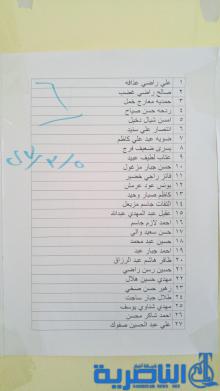 ١ علي راضي عذافه
٢ صالح راضي غضب
٣ حمديه معارج حمل
٤ ردحه حسن صياح
٥ امسن شيال دخيل
٦ انتصار علي سنيد
٧ ضويه عبد علي كاظم
٨ يسرى ضعيف فرج
٩ عقاب لطيف عبيد
١٠ حسن جبار مزعول
١١ فائز راجي خضير
١٢ يونس عوده عرمش
١٣ كاظم صبار وحيد
١٤ التفات جاسم مزعل
١٥ عقيل عبد المهدي عبدالله
١٦ احمد لازم جاسم
١٧ حسن سعيد والي
١٨ حسين عبد محمد
١٩ احمد جبار عبد
٢٠ ظافر هاشم عبد الرزاق
٢١ حسين رسن راضي
٢٢ مهدي حسين هلال
٢٣ زهير حسن صخي
٢٤ طلال جبار ساجت
٢٥ مهدي شناوي يوسف
٢٦ احمد شاكر محسن
٢٧ علي عبد الحسين صفوك
٦
الناصرية